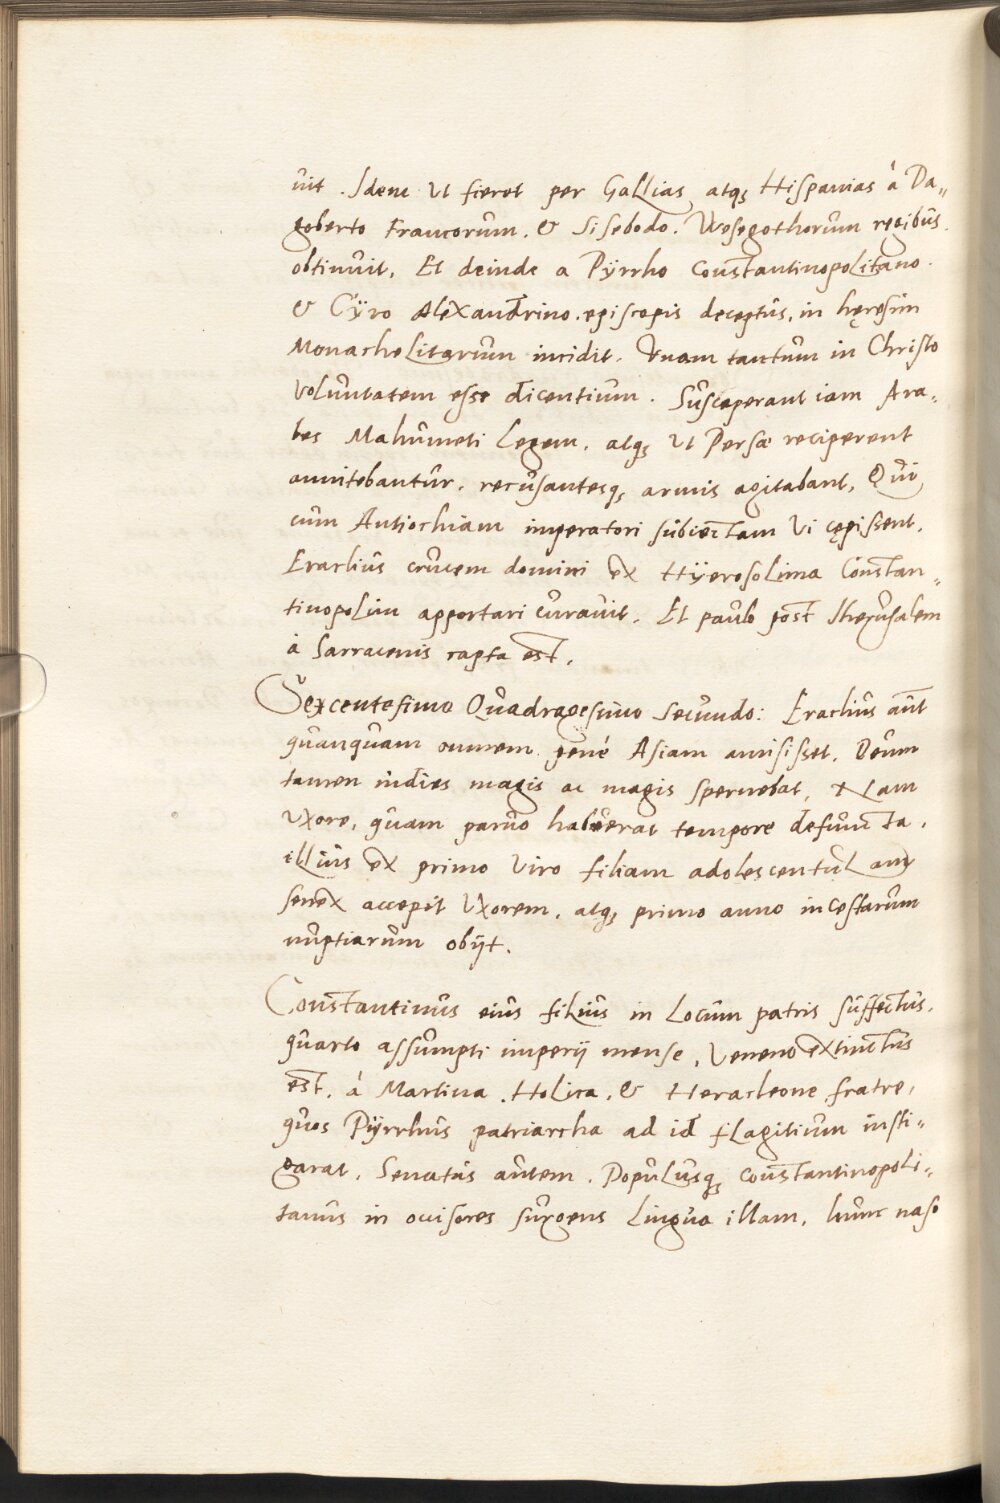 uit. Idem Ut fieret per Gallias atq; Hispanias á Da„
goberto Francorum. & Sisebodo. Wesegothorum regibus.
obtinuit, Et deinde a Pÿrrho Constantinopolitano.
& Cÿro Alexandrino. episcopis deceptus, in hęresim
Monachelitarum incidit. Vnam tantum in Christo
voluntatem esse dicentium. Susceperant iam Ara„
bes Mahumeti Legem. atq; Ut Persæ reciperent
annitebantur. recusantesq; armis agitabant, Qui
cum Antiochiam imperatori subiectam Vi cępissent.
Eraclius crucem domini ex Hÿerosolima Constan„
tinopolim apportari curauit. Et paulo post Iherusalem
á Sarracenis rapta est.
Sexcentesimo Quadragesimo Secundo: Eraclius aut
quanquam omnem pené Asiam amisisset. Deum
tamen indies magis ac magis spernebat, Nam
Uxore, quam paruo habuerat tempore defuncta.
illius ex primo Viro filiam adolescentulam
senex accepit Uxorem. atq; primo anno incestarum
nuptiarum obijt.
Constantinus eius filius in Locum patris suffectus.
quarto assumpti imperij mense, Veneno extinctus
est. á Martina. Nolica. & Heracleone fratre,
quos Pÿrrhus patriarcha ad id flagitium insti„
garat. Senatus autem. Populusq; Constantinopoli„
tanus in occisores surgens Lingua illam, hunc naso